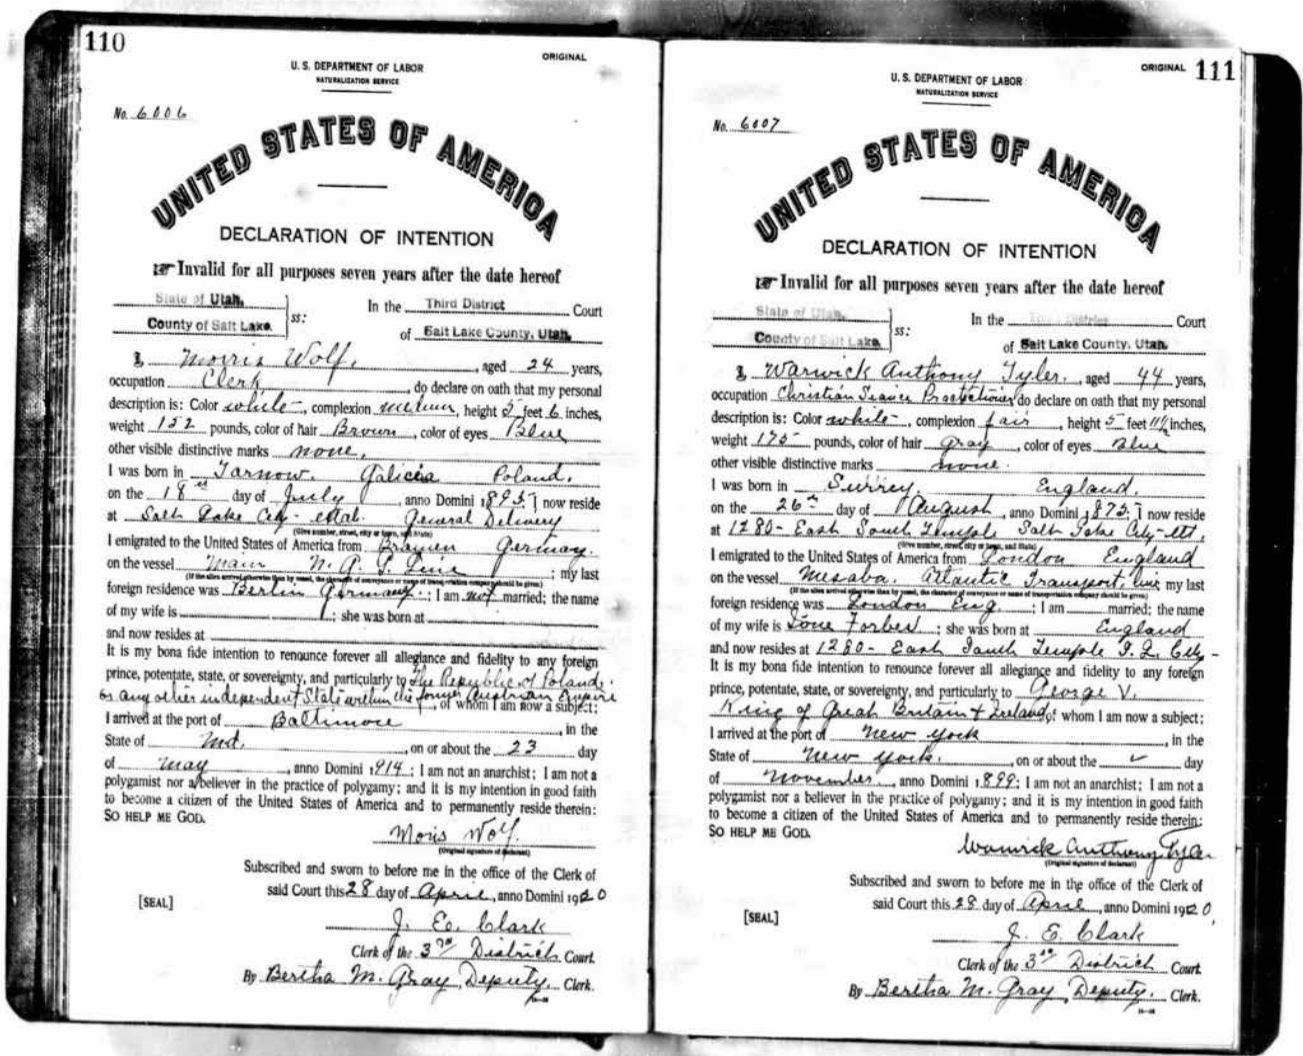 110
ORIGINAL
U. S. DEPARTMENT OF LABOR
NATURALIZATION SERVICE
No. 6006
UNITED STATES OF AMERICA
DECLARATION OF INTENTION
☞ Invalid for all purposes seven years after the date hereof
State of Utah, In the Third District Court
County of Salt Lake. ss: of Salt Lake County, Utah.
I, Morris Wolf, aged 24 years,
occupation Clerk, do declare on oath that my personal
description is: Color white, complexion medium, height 5 feet 6 inches,
weight 152 pounds, color of hair Brown, color of eyes Blue
other visible distinctive marks none.
I was born in Tarnow. Galicia Poland.
on the 18 day of July, anno Domini 1895; I now reside
at Salt Lake City General Delivery
(Give number, street, city or town, and State)
I emigrated to the United States of America from Bremen Germany.
on the vessel Main N. G. L. Line; my last
(If the alien arrived otherwise than by vessel, the character of conveyance or name of transportation company should be given)
foreign residence was Berlin Germany; I am not married; the name
of my wife is ; she was born at
and now resides at
It is my bona fide intention to renounce forever all allegiance and fidelity to any foreign
prince, potentate, state, or sovereignty, and particularly to The Republic of Poland.
or any other independent State within the former Austrian Empire, of whom I am now a subject;
I arrived at the port of Baltimore, in the
State of Md., on or about the 23 day
of May, anno Domini 1914; I am not an anarchist; I am not a
polygamist nor a believer in the practice of polygamy; and it is my intention in good faith
to become a citizen of the United States of America and to permanently reside therein:
SO HELP ME GOD.
Moris Wolf.
(Original signature of declarant)
Subscribed and sworn to before me in the office of the Clerk of
said Court this 28 day of April, anno Domini 1920
[SEAL]
J. E. Clark
Clerk of the 3rd District Court.
By Bertha M. Gray, Deputy. Clerk.
ORIGINAL 111
U. S. DEPARTMENT OF LABOR
NATURALIZATION SERVICE
No. 6007
UNITED STATES OF AMERICA
DECLARATION OF INTENTION
☞ Invalid for all purposes seven years after the date hereof
State of Utah, In the Third District Court
County of Salt Lake. ss: of Salt Lake County, Utah.
I, Warwick Anthony Tyler., aged 44 years,
occupation Christian Science Practitioner do declare on oath that my personal
description is: Color white, complexion fair, height 5 feet 11½ inches,
weight 175 pounds, color of hair gray, color of eyes Blue
other visible distinctive marks none.
I was born in Surrey England.
on the 26 day of August, anno Domini 1875; I now reside
at 1280 - East South Temple Salt Lake City Ut.
(Give number, street, city or town, and State)
I emigrated to the United States of America from London England
on the vessel Mesaba. Atlantic Transport, line my last
(If the alien arrived otherwise than by vessel, the character of conveyance or name of transportation company should be given)
foreign residence was London Eng.; I am married; the name
of my wife is Forbes; she was born at England
and now resides at 1280 - East South Temple S. L. City -
It is my bona fide intention to renounce forever all allegiance and fidelity to any foreign
prince, potentate, state, or sovereignty, and particularly to George V.
King of Great Britain & Ireland, of whom I am now a subject;
I arrived at the port of New York, in the
State of New York., on or about the ✓ day
of November, anno Domini 1899; I am not an anarchist; I am not a
polygamist nor a believer in the practice of polygamy; and it is my intention in good faith
to become a citizen of the United States of America and to permanently reside therein:
SO HELP ME GOD.
Warwick Anthony Tyler
(Original signature of declarant)
Subscribed and sworn to before me in the office of the Clerk of
said Court this 28 day of April, anno Domini 1920
[SEAL]
J. E. Clark
Clerk of the 3rd District Court
By Bertha M. Gray, Deputy. Clerk.